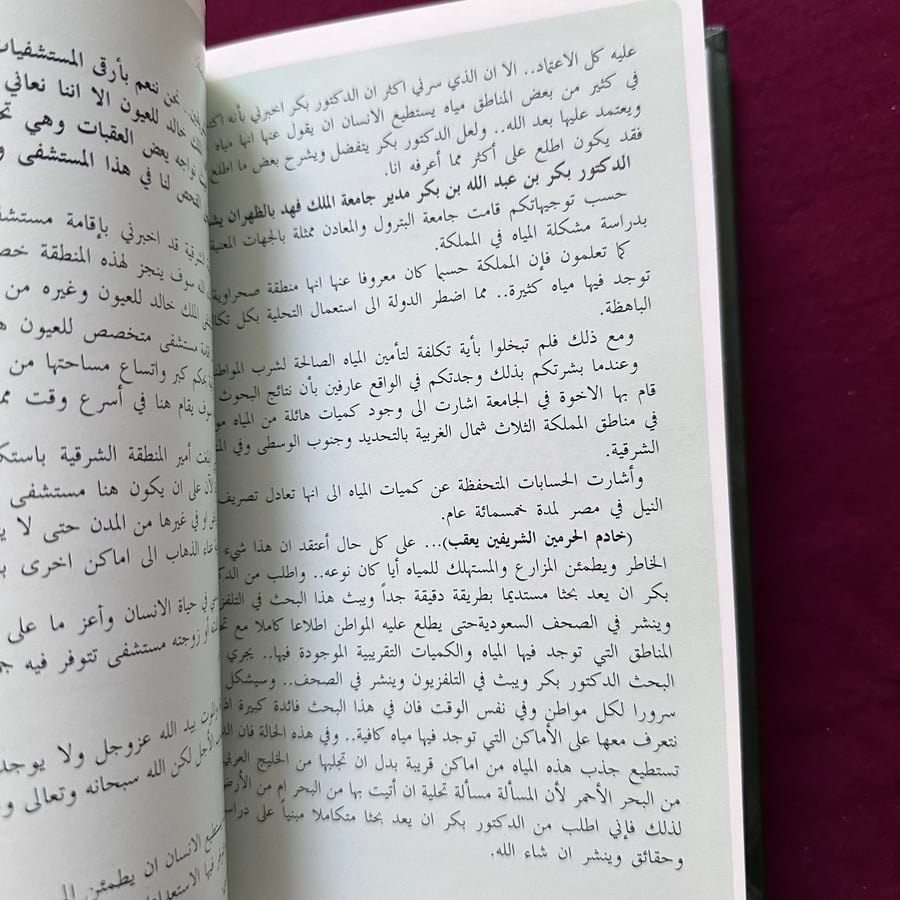 عليه كل الاعتماد.. الا ان الذي سرني اكثر ان الدكتور بكر اخبرني بأنه
في كثير من بعض المناطق مياه يستطيع الانسان ان يقول عنها انها مياه
ويعتمد عليها بعد الله.. ولعل الدكتور بكر يتفضل ويشرح بعض ما اطلع
فقد يكون اطلع على أكثر مما أعرفه انا.
الدكتور بكر بن عبد الله بن بكر مدير جامعة الملك فهد بالظهران
حسب توجيهاتكم قامت جامعة البترول والمعادن ممثلة بالجهات المعنية
بدراسة مشكلة المياه في المملكة.
كما تعلمون فإن المملكة حسبما كان معروفا عنها انها منطقة صحراوية
توجد فيها مياه كثيرة.. مما اضطر الدولة الى استعمال التحلية بكل
الباهظة.
ومع ذلك فلم تبخلوا بأية تكلفة لتأمين المياه الصالحة لشرب
وعندما بشرتكم بذلك وجدتكم في الواقع عارفين بأن نتائج البحوث
قام بها الاخوة في الجامعة اشارت الى وجود كميات هائلة من المياه
في مناطق المملكة الثلاث شمال الغربية بالتحديد وجنوب الوسطى وفي
الشرقية.
وأشارت الحسابات المتحفظة عن كميات المياه الى انها تعادل تصريف
النيل في مصر لمدة خمسمائة عام.
(خادم الحرمين الشريفين يعقب)... على كل حال أعتقد ان هذا شيء
الخاطر ويطمئن المزارع والمستهلك للمياه أيا كان نوعه.. واطلب من
بكر ان يعد بحثا مستديما بطريقة دقيقة جداً ويبث هذا البحث في
وينشر في الصحف السعوديةحتى يطلع عليه المواطن اطلاعا كاملا مع
المناطق التي توجد فيها المياه والكميات التقريبية الموجودة فيها.. يجري
البحث الدكتور بكر ويبث في التلفزيون وينشر في الصحف.. وسيشكل
سرورا لكل مواطن وفي نفس الوقت فان في هذا البحث فائدة كبيرة
نتعرف معها على الأماكن التي توجد فيها مياه كافية.. وفي هذه الحالة فان
تستطيع جذب هذه المياه من اماكن قريبة بدل ان تجلبها من الخليج العربي
من البحر الأحمر لأن المسألة مسألة تحلية ان أتيت بها من البحر ام من
لذلك فإني اطلب من الدكتور بكر ان يعد بحثا متكاملا مبنياً على
وحقائق وينشر ان شاء الله.
نحن ننعم بأرقى المستشفيات
خالد للعيون الا اننا نعاني
تواجه بعض العقبات وهي
الفحص لنا في هذا المستشفى
قد اخبرني بإقامة
الله سوف ينجز لهذه المنطقة
الملك خالد للعيون وغيره من
مستشفى متخصص للعيون
بحكم كبر واتساع مساحتها من
سوف يقام هنا في أسرع وقت
أمير المنطقة الشرقية
على ان يكون هنا مستشفى
او في غيرها من المدن حتى لا
عناء الذهاب الى اماكن اخرى
في حياة الانسان وأعز ما على
أو زوجته مستشفى تتوفر فيه
بيد الله عزوجل ولا يوجد
الأجل لكن الله سبحانه وتعالى
الانسان ان يطمئن